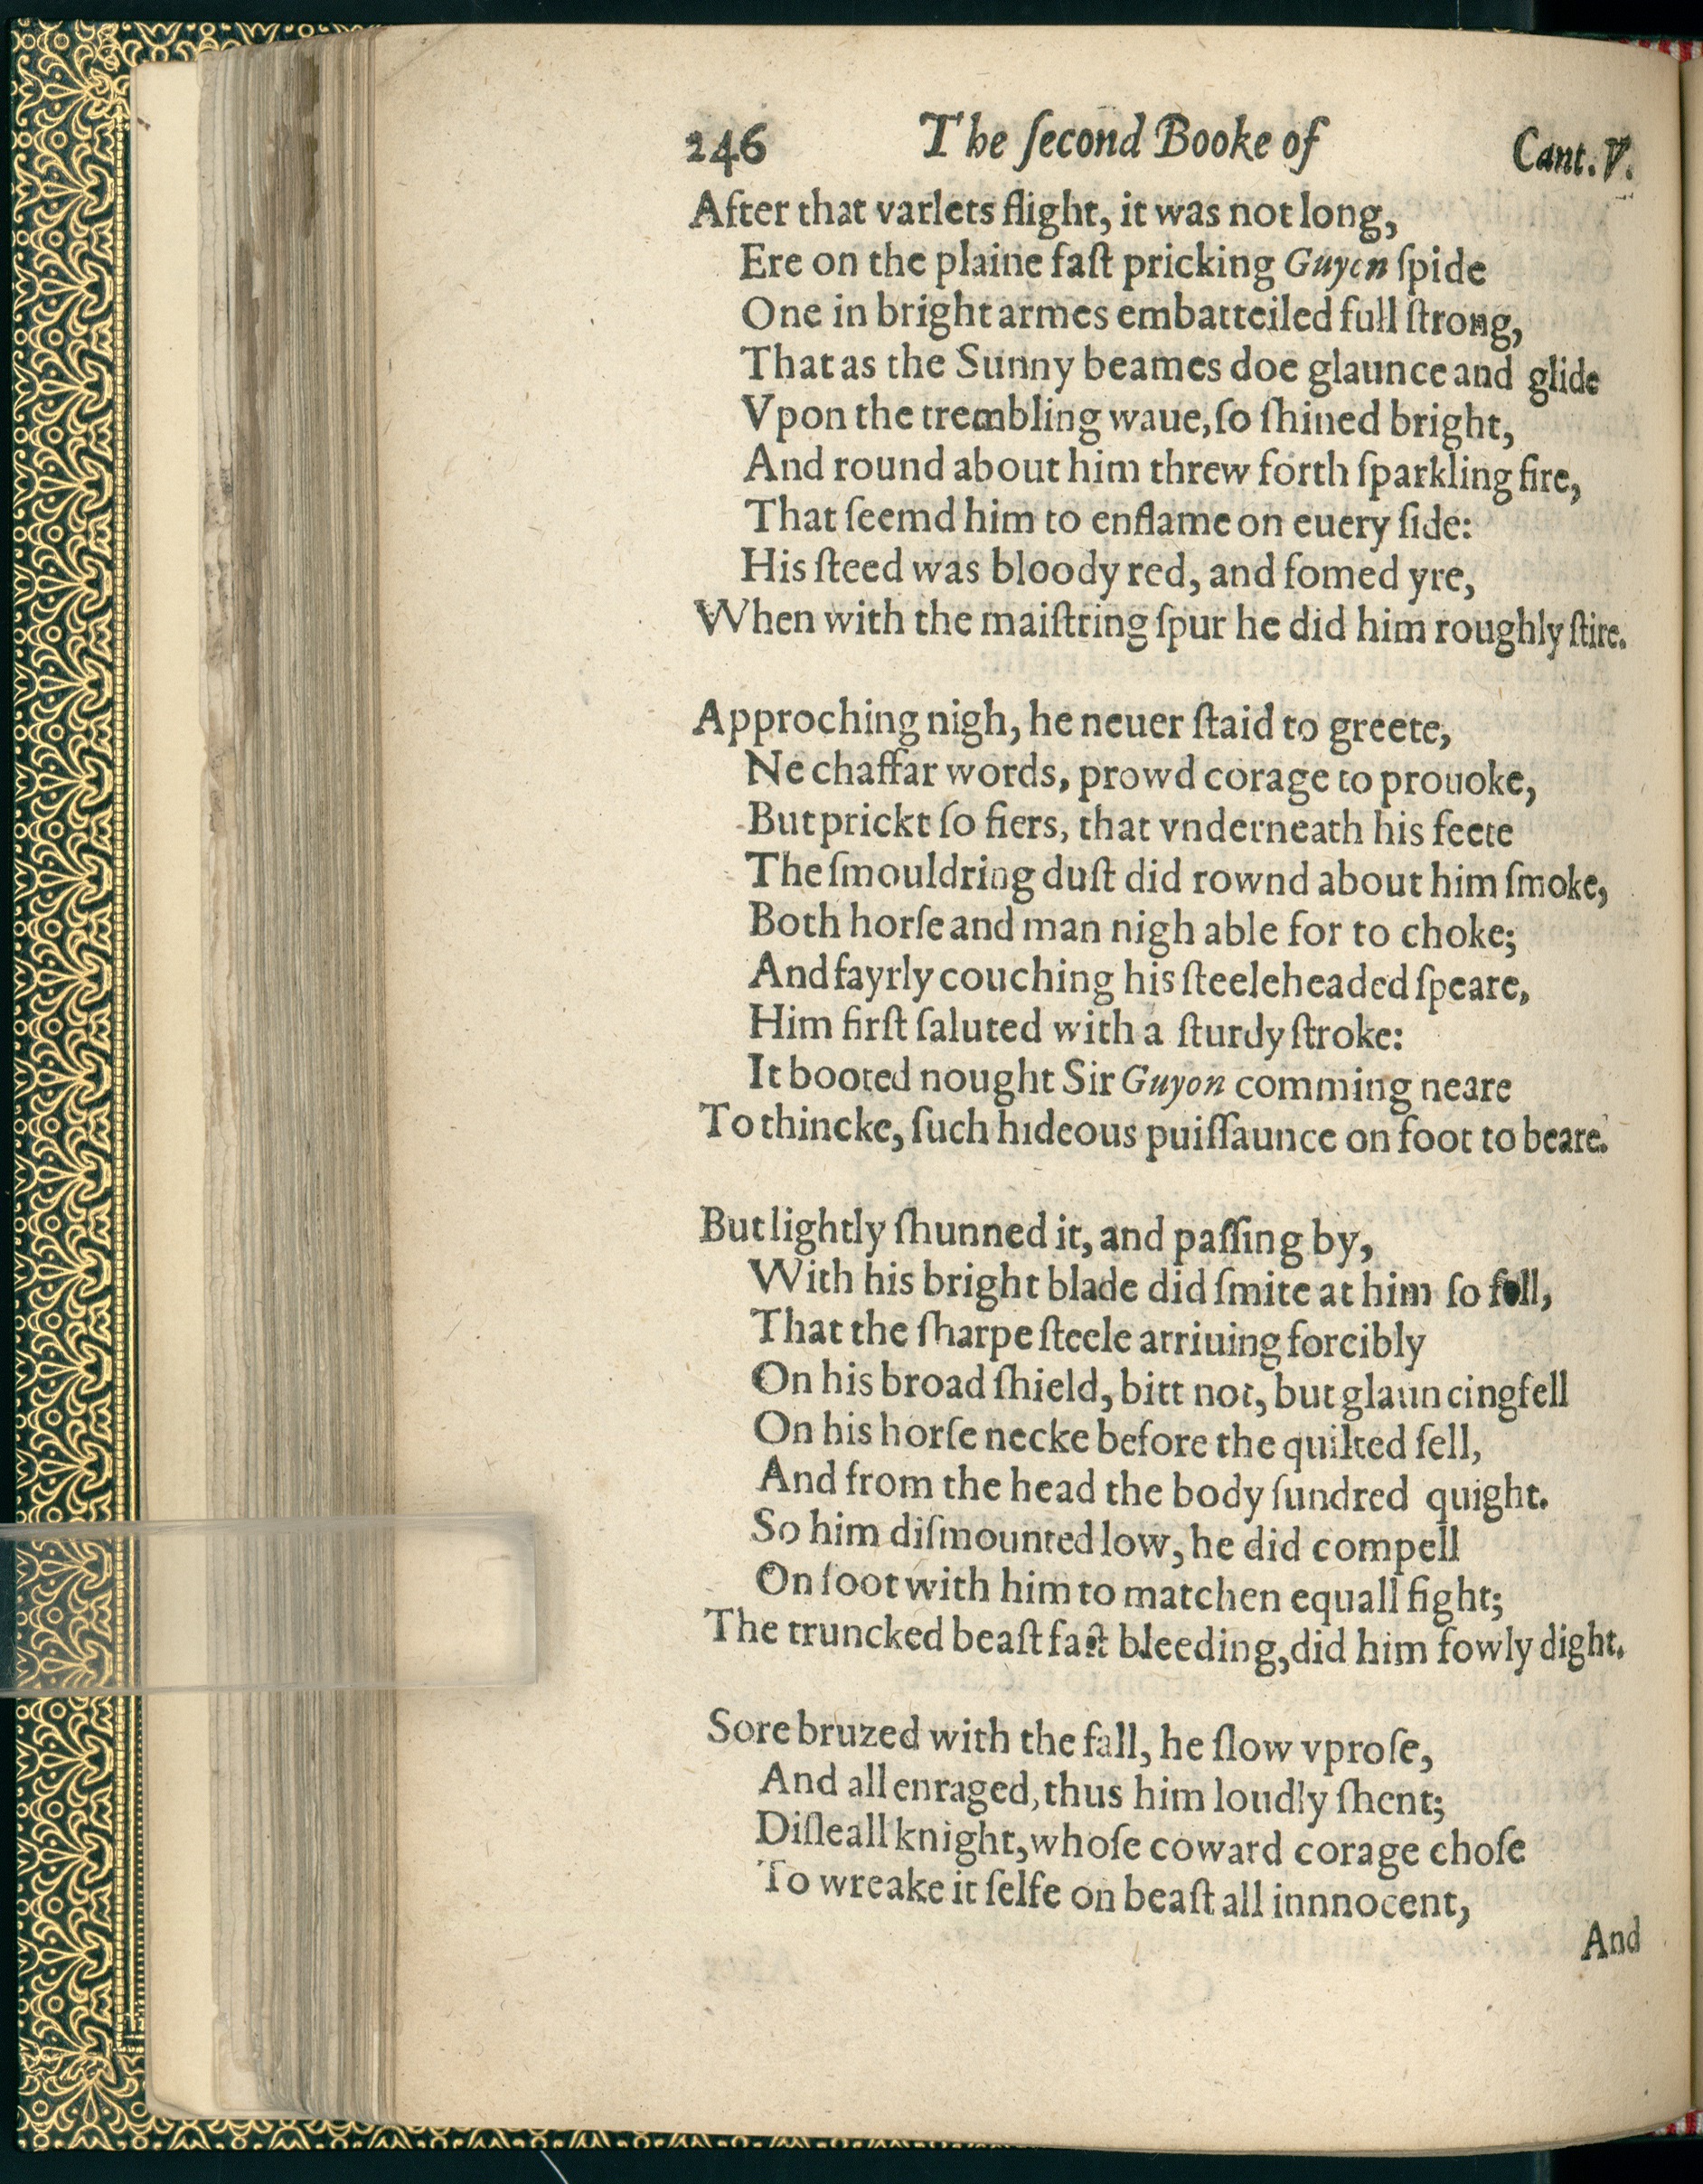 246 The ſecond Booke of Cant. V.
After that varlets flight, it was not long,
Ere on the plaine faſt pricking Guyon ſpide
One in bright armes embatteiled full ſtrong,
That as the Sunny beames doe glaunce and glide
Vpon the trembling waue, ſo ſhined bright,
And round about him threw forth ſparkling fire,
That ſeemd him to enflame on euery ſide:
His ſteed was bloody red, and fomed yre,
When with the maiſtring ſpur he did him roughly ſtire.
Approching nigh, he neuer ſtaid to greete,
Ne chaffar words, prowd corage to prouoke,
But prickt ſo fiers, that vnderneath his feete
The ſmouldring duſt did rownd about him ſmoke,
Both horſe and man nigh able for to choke;
And fayrly couching his ſteeleheaded ſpeare,
Him firſt ſaluted with a ſturdy ſtroke:
It booted nought Sir Guyon comming neare
To thincke, ſuch hideous puiſſaunce on foot to beare.
But lightly ſhunned it, and paſſing by,
With his bright blade did ſmite at him ſo fell,
That the ſharpe ſteele arriuing forcibly
On his broad ſhield, bitt not, but glauncing fell
On his horſe necke before the quilted ſell,
And from the head the body ſundred quight.
So him diſmounted low, he did compell
On foot with him to matchen equall fight;
The truncked beaſt faſt bleeding, did him fowly dight.
Sore bruzed with the fall, he ſlow vproſe,
And all enraged, thus him loudly ſhent;
Diſleall knight, whoſe coward corage choſe
To wreake it ſelfe on beaſt all innnocent,
And